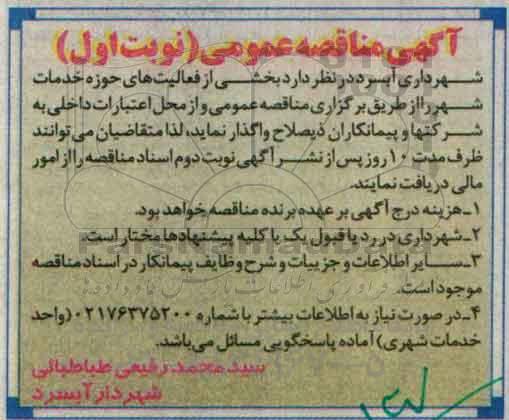 آگهی مناقصه عمومی (نوبت اول)
شهرداری آبسرد در نظر دارد بخشی از فعالیت‌های حوزه خدمات
شهر را از طریق برگزاری مناقصه عمومی و از محل اعتبارات داخلی به
شرکتها و پیمانکاران ذیصلاح واگذار نماید، لذا متقاضیان می‌توانند
ظرف مدت ۱۰ روز پس از نشر آگهی نوبت دوم اسناد مناقصه را از امور
مالی دریافت نمایند.
۱ـ هزینه درج آگهی بر عهده برنده مناقصه خواهد بود.
۲ـ شهرداری در رد یا قبول یک یا کلیه پیشنهادها مختار است.
۳ـ سایر اطلاعات و جزییات و شرح وظایف پیمانکار در اسناد مناقصه
موجود است.
۴ـ در صورت نیاز به اطلاعات بیشتر با شماره ۰۲۱۷۶۳۷۵۲۰۰ (واحد
خدمات شهری) آماده پاسخگویی مسائل می‌باشد.
سید محمد رفیعی طباطبائی
شهردار آبسرد